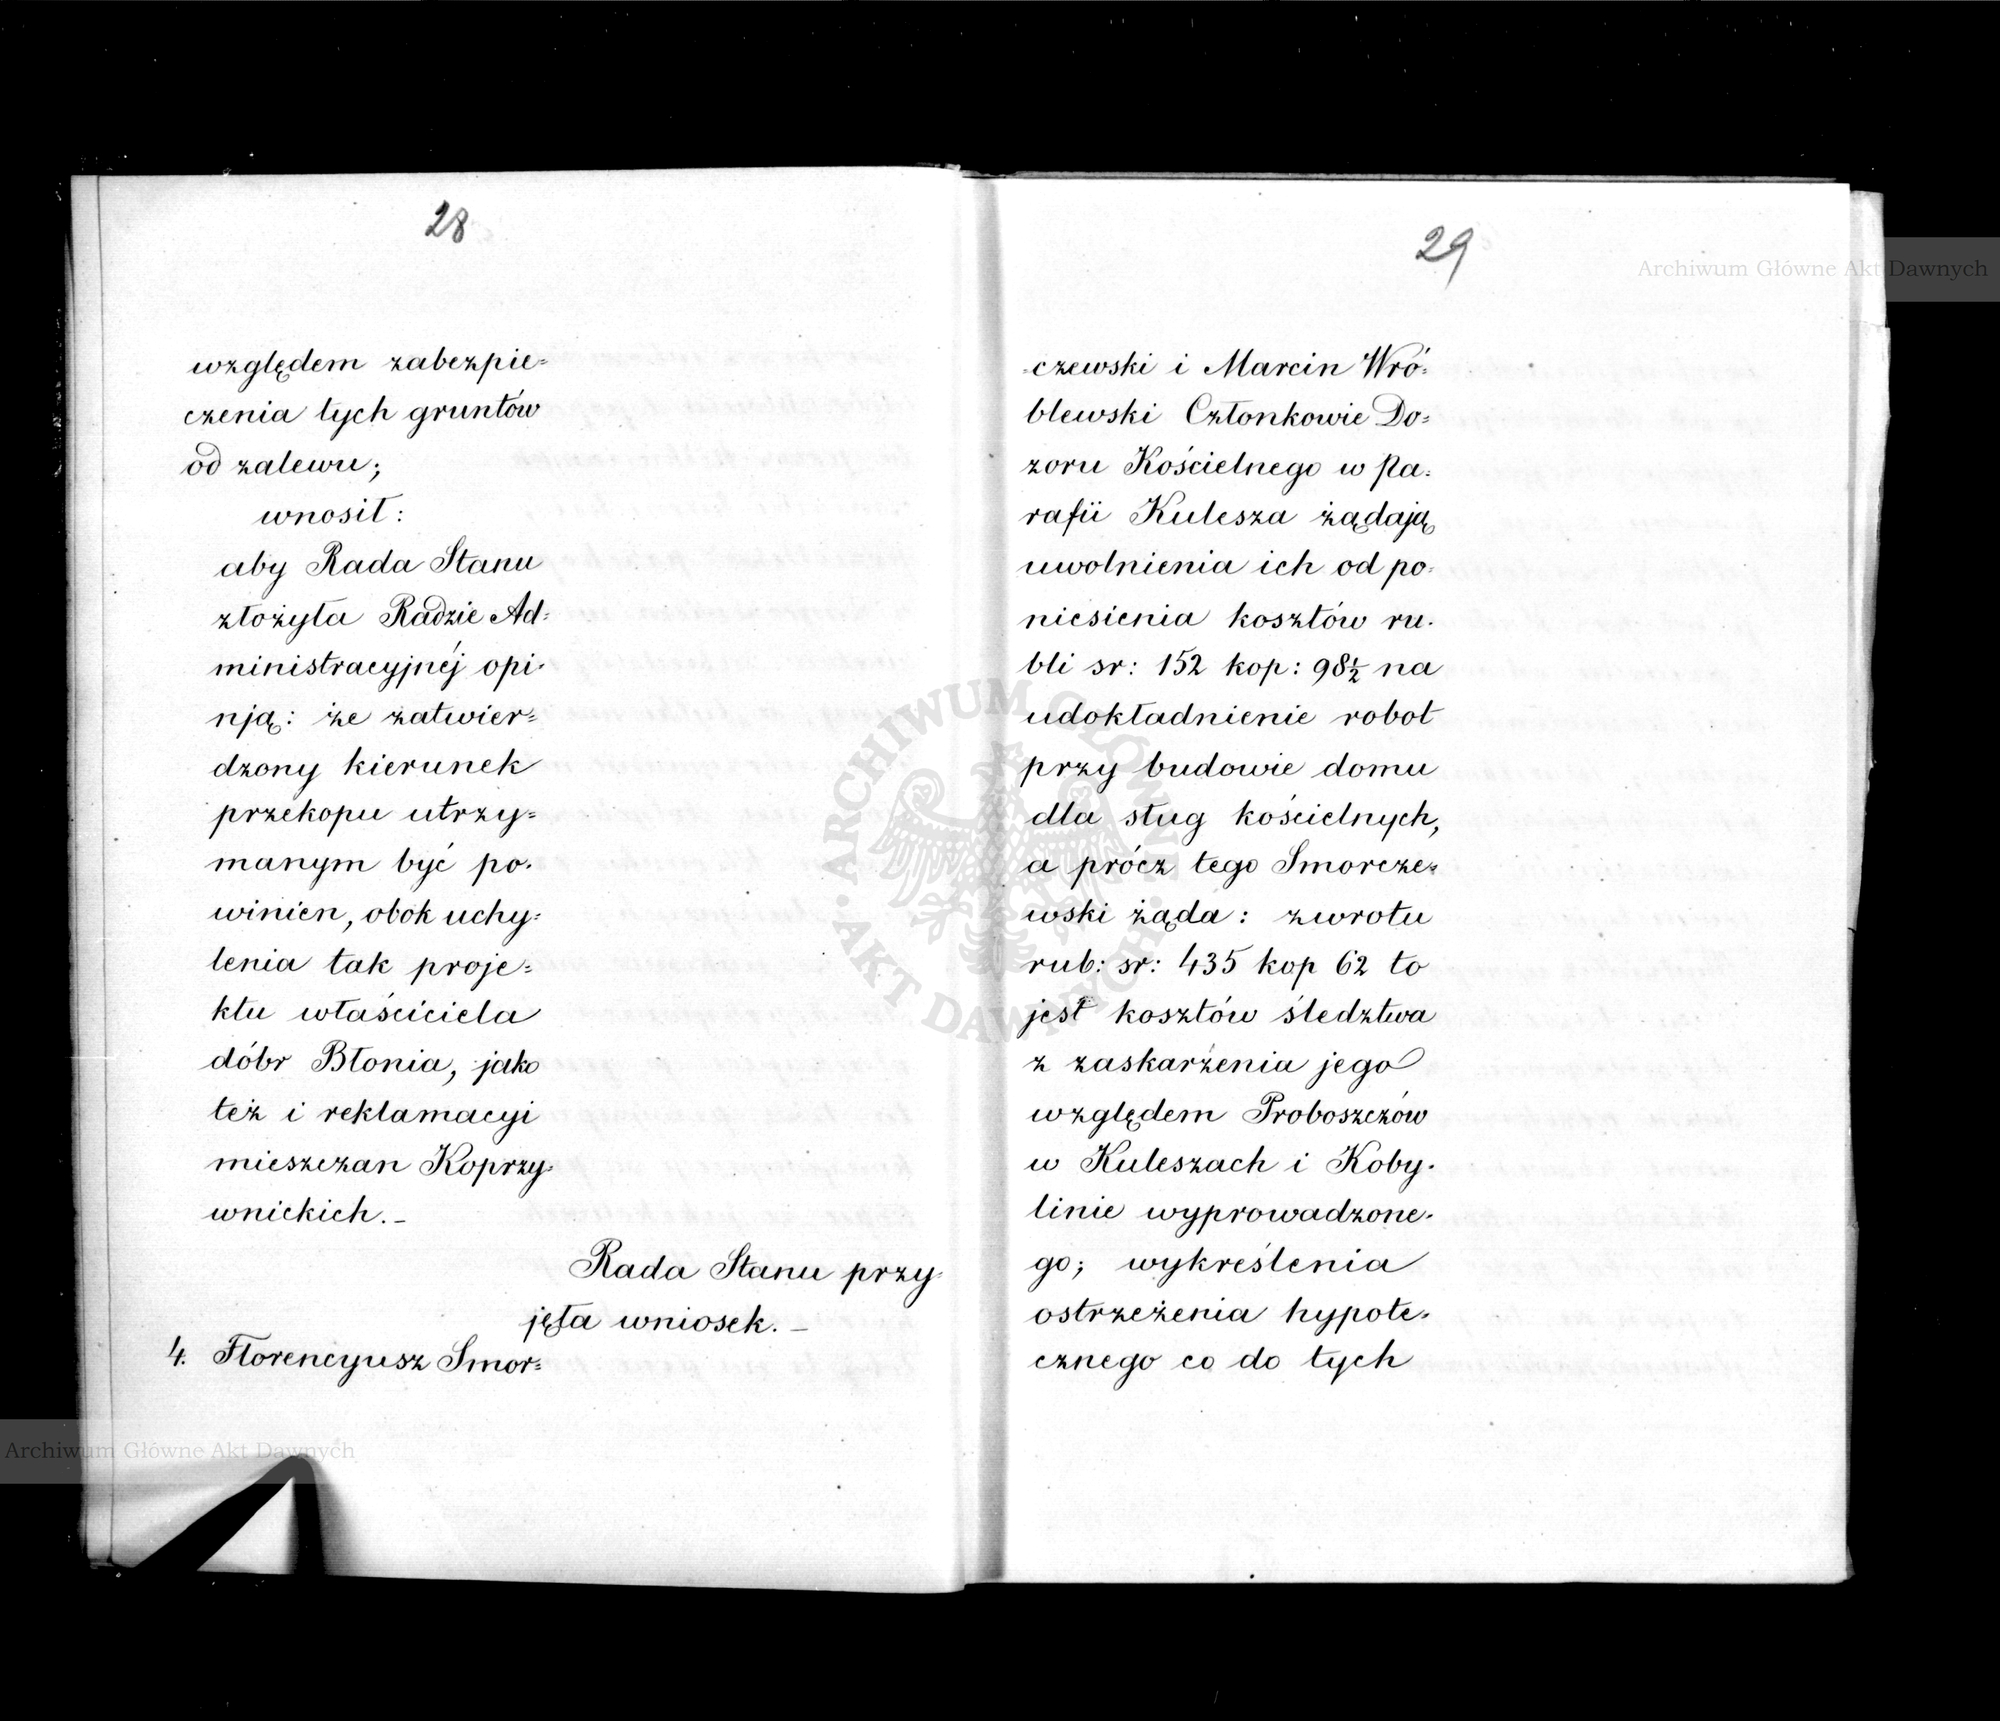 28
względem zabezpie=
czenia tych gruntów
od zalewu;
wnosił:
aby Rada Stanu
złożyła Radzie Ad=
ministracyjnéj opi-
nją: że zatwier=
dzony kierunek
przekopu utrzy=
manym być po-
winien, obok uchy=
lenia tak proje=
ktu właściciela
dóbr Błonia, jako
też i reklamacyi
mieszczan Koprzy-
wnickich.–
Rada Stanu przy-
jęła wniosek.–
4. Florencyusz Smor=
29
-czewski i Marcin Wró-
blewski Członkowie Do=
zoru Kościelnego w Pa-
rafii Kulesza żądają
uwolnienia ich od po-
niesienia kosztów ru-
bli sr: 152 kop: 98½ na
udokładnienie robot
przy budowie domu
dla sług kościelnych,
a prócz tego Smorcze=
wski żąda: zwrotu
rub: sr: 435 kop 62 to
jest kosztów śledztwa
z zaskarżenia jego
względem Proboszczów
w Kuleszach i Koby-
linie wyprowadzone-
go; wykreślenia
ostrzeżenia hypote-
cznego co do tych
Archiwum Główne Akt Dawnych
Archiwum Główne Akt Dawnych
ARCHIWUM GŁÓWNE AKT DAWNYCH